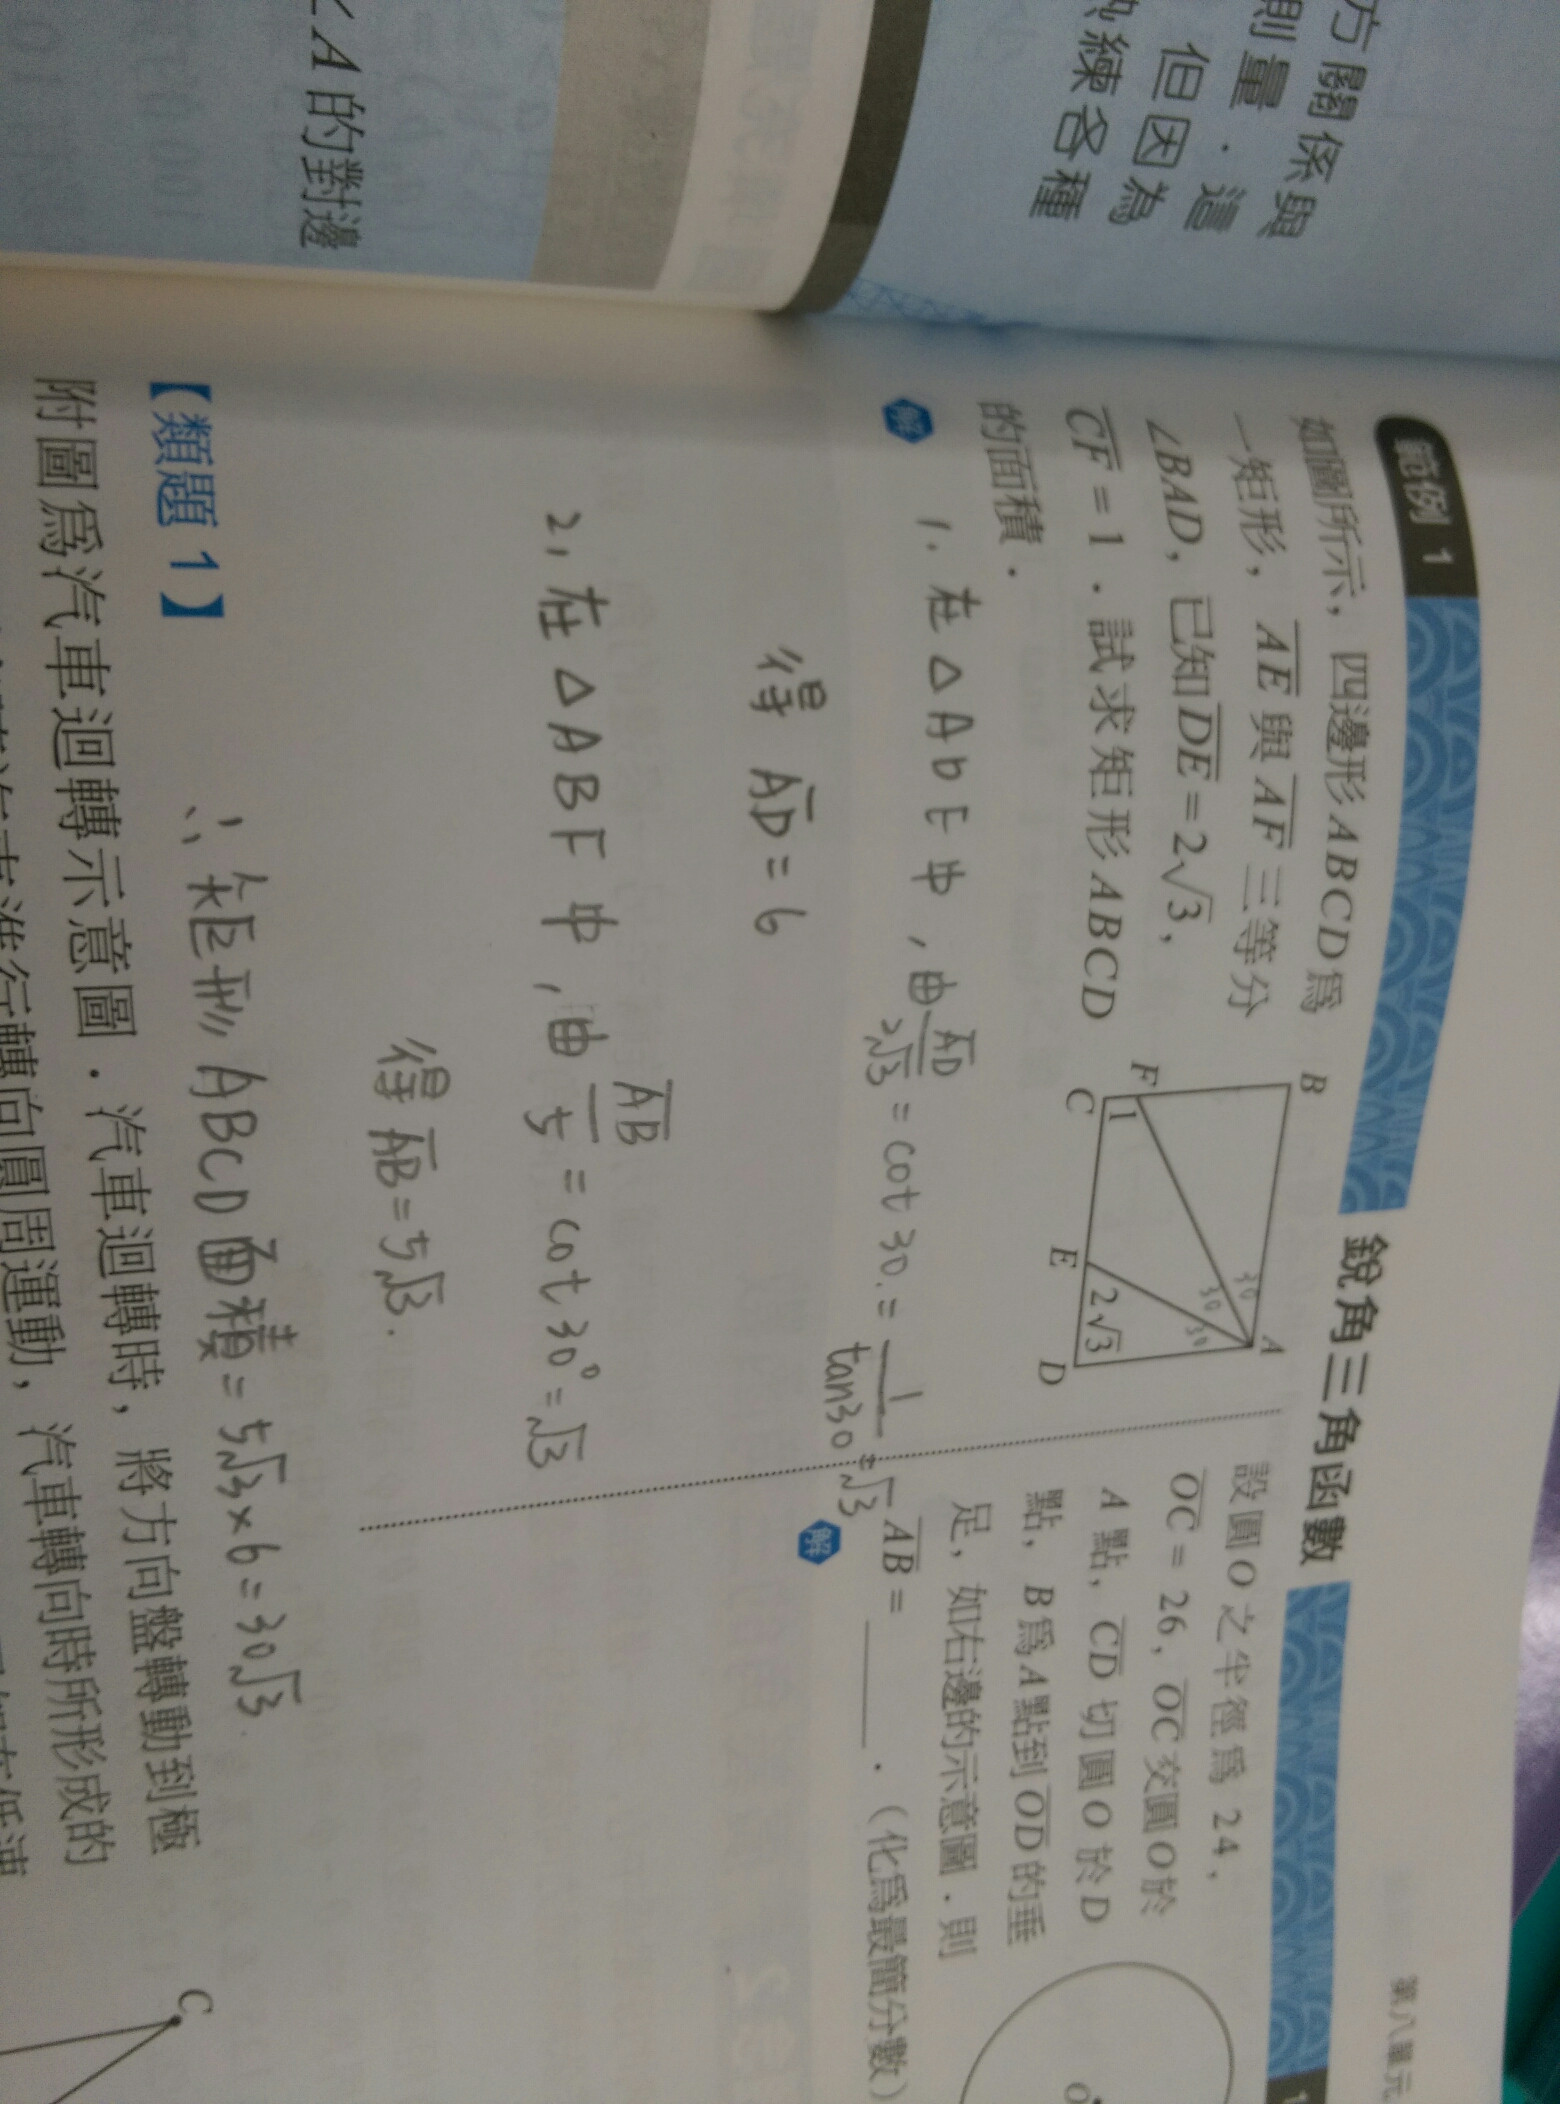 方關係與
則量．這
但因為
練各種
∠A 的對邊
第八單元
銳角三角函數
範例 1
如圖所示，四邊形 ABCD 為
一矩形，\overline{AE} 與 \overline{AF} 三等分
∠BAD，已知 \overline{DE} = 2√3，
\overline{CF} = 1．試求矩形 ABCD
的面積．
B
A
F
C
E
D
1
2√3
30
30
30
解
1. 在 △ADE 中，由 \overline{AD}/2√3 = cot 30. = 1/tan30 = √3
得 \overline{AD} = 6
2, 在 △ABF 中，由 \overline{AB}/5 = cot 30° = √3
得 \overline{AB} = 5√3.
∴ 矩形 ABCD 面積 = 5√3 × 6 = 30√3.
設圓 O 之半徑為 24，
\overline{OC} = 26，\overline{OC} 交圓 O 於
A 點，\overline{CD} 切圓 O 於 D
點，B 為 A 點到 \overline{OD} 的垂
足，如右邊的示意圖．則
\overline{AB} = ______．（化為最簡分數）
解
O
【類題 1】
附圖為汽車迴轉示意圖．汽車迴轉時，將方向盤轉動到極
進行轉向圓周運動，汽車轉向時所形成的
C